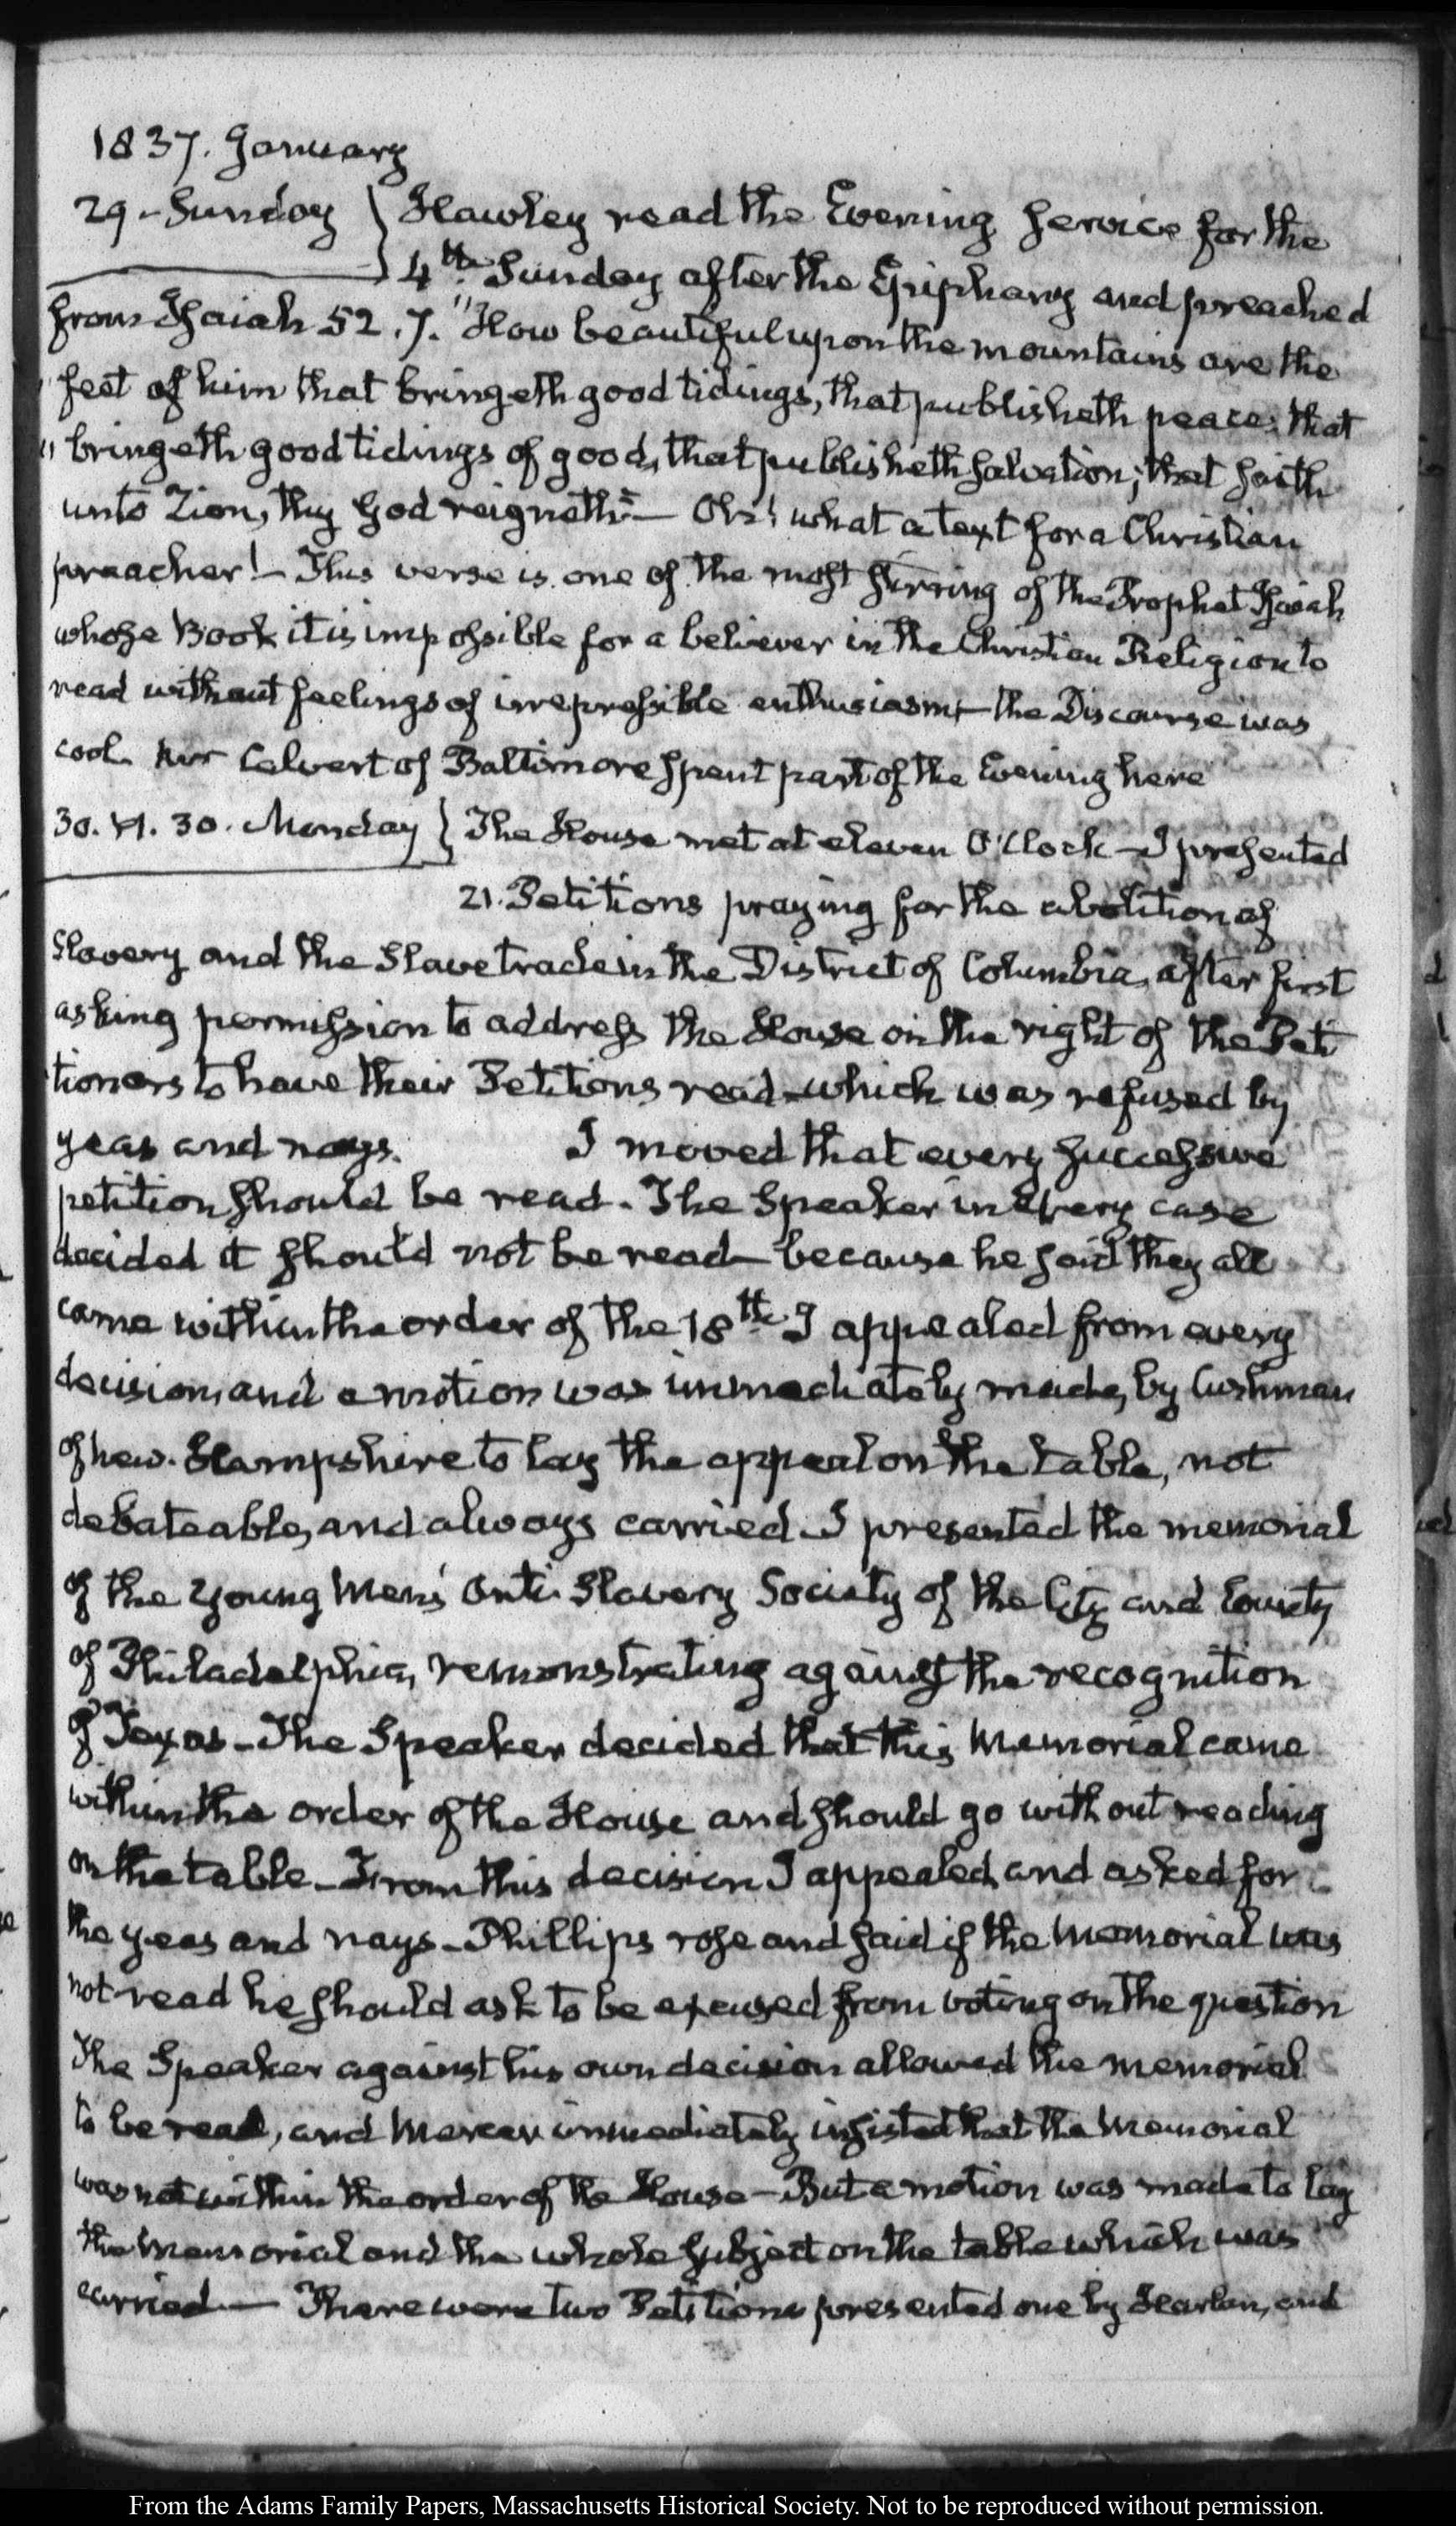 1837. January
29 - Sunday } Hawley read the Evening Service for the
4th. Sunday after the Epiphany and preached
from Isaiah 52.7. "How beautiful upon the mountains are the
" feet of him that bringeth good tidings, that publisheth peace; that
" bringeth good tidings of good, that publisheth salvation; that saith
unto Zion, thy God reigneth"— Oh! what a text for a Christian
preacher!— This verse is one of the most stirring of the Prophet Isaiah
whose Book it is impossible for a believer in the Christian Religion to
read without feelings of irrepressible enthusiasm— the Discourse was
cool. Mr Calvert of Baltimore spent part of the Evening here
30. VI. 30. Monday } The House met at eleven O'Clock — I presented
21. Petitions praying for the abolition of
Slavery and the Slave trade in the District of Columbia, after first
asking permission to address the House on the right of the Peti
tioners to have their Petitions read - which was refused by
yeas and nays. I moved that every successive
petition should be read. The Speaker in every case
decided it should not be read because he said they all
came within the order of the 18th. I appealed from every
decision, and a motion was immediately made, by Cushman
of New-Hampshire to lay the appeal on the table, not
debateable, and always carried. I presented the memorial
of the Young Men's Anti Slavery Society of the City and County
of Philadelphia, remonstrating against the recognition
of Texas - The Speaker decided that this Memorial came
within the order of the House and should go without reading
on the table - From this decision I appealed, and asked for
the yeas and nays - Phillips rose and said if the Memorial was
not read he should ask to be excused from voting on the question
The Speaker against his own decision allowed the memorial
to be read, and Mercer immediately insisted that the Memorial
was not within the order of the House - But a motion was made to lay
the Memorial and the whole subject on the table which was
carried — There were two Petitions presented one by Harlan, and
From the Adams Family Papers, Massachusetts Historical Society. Not to be reproduced without permission.